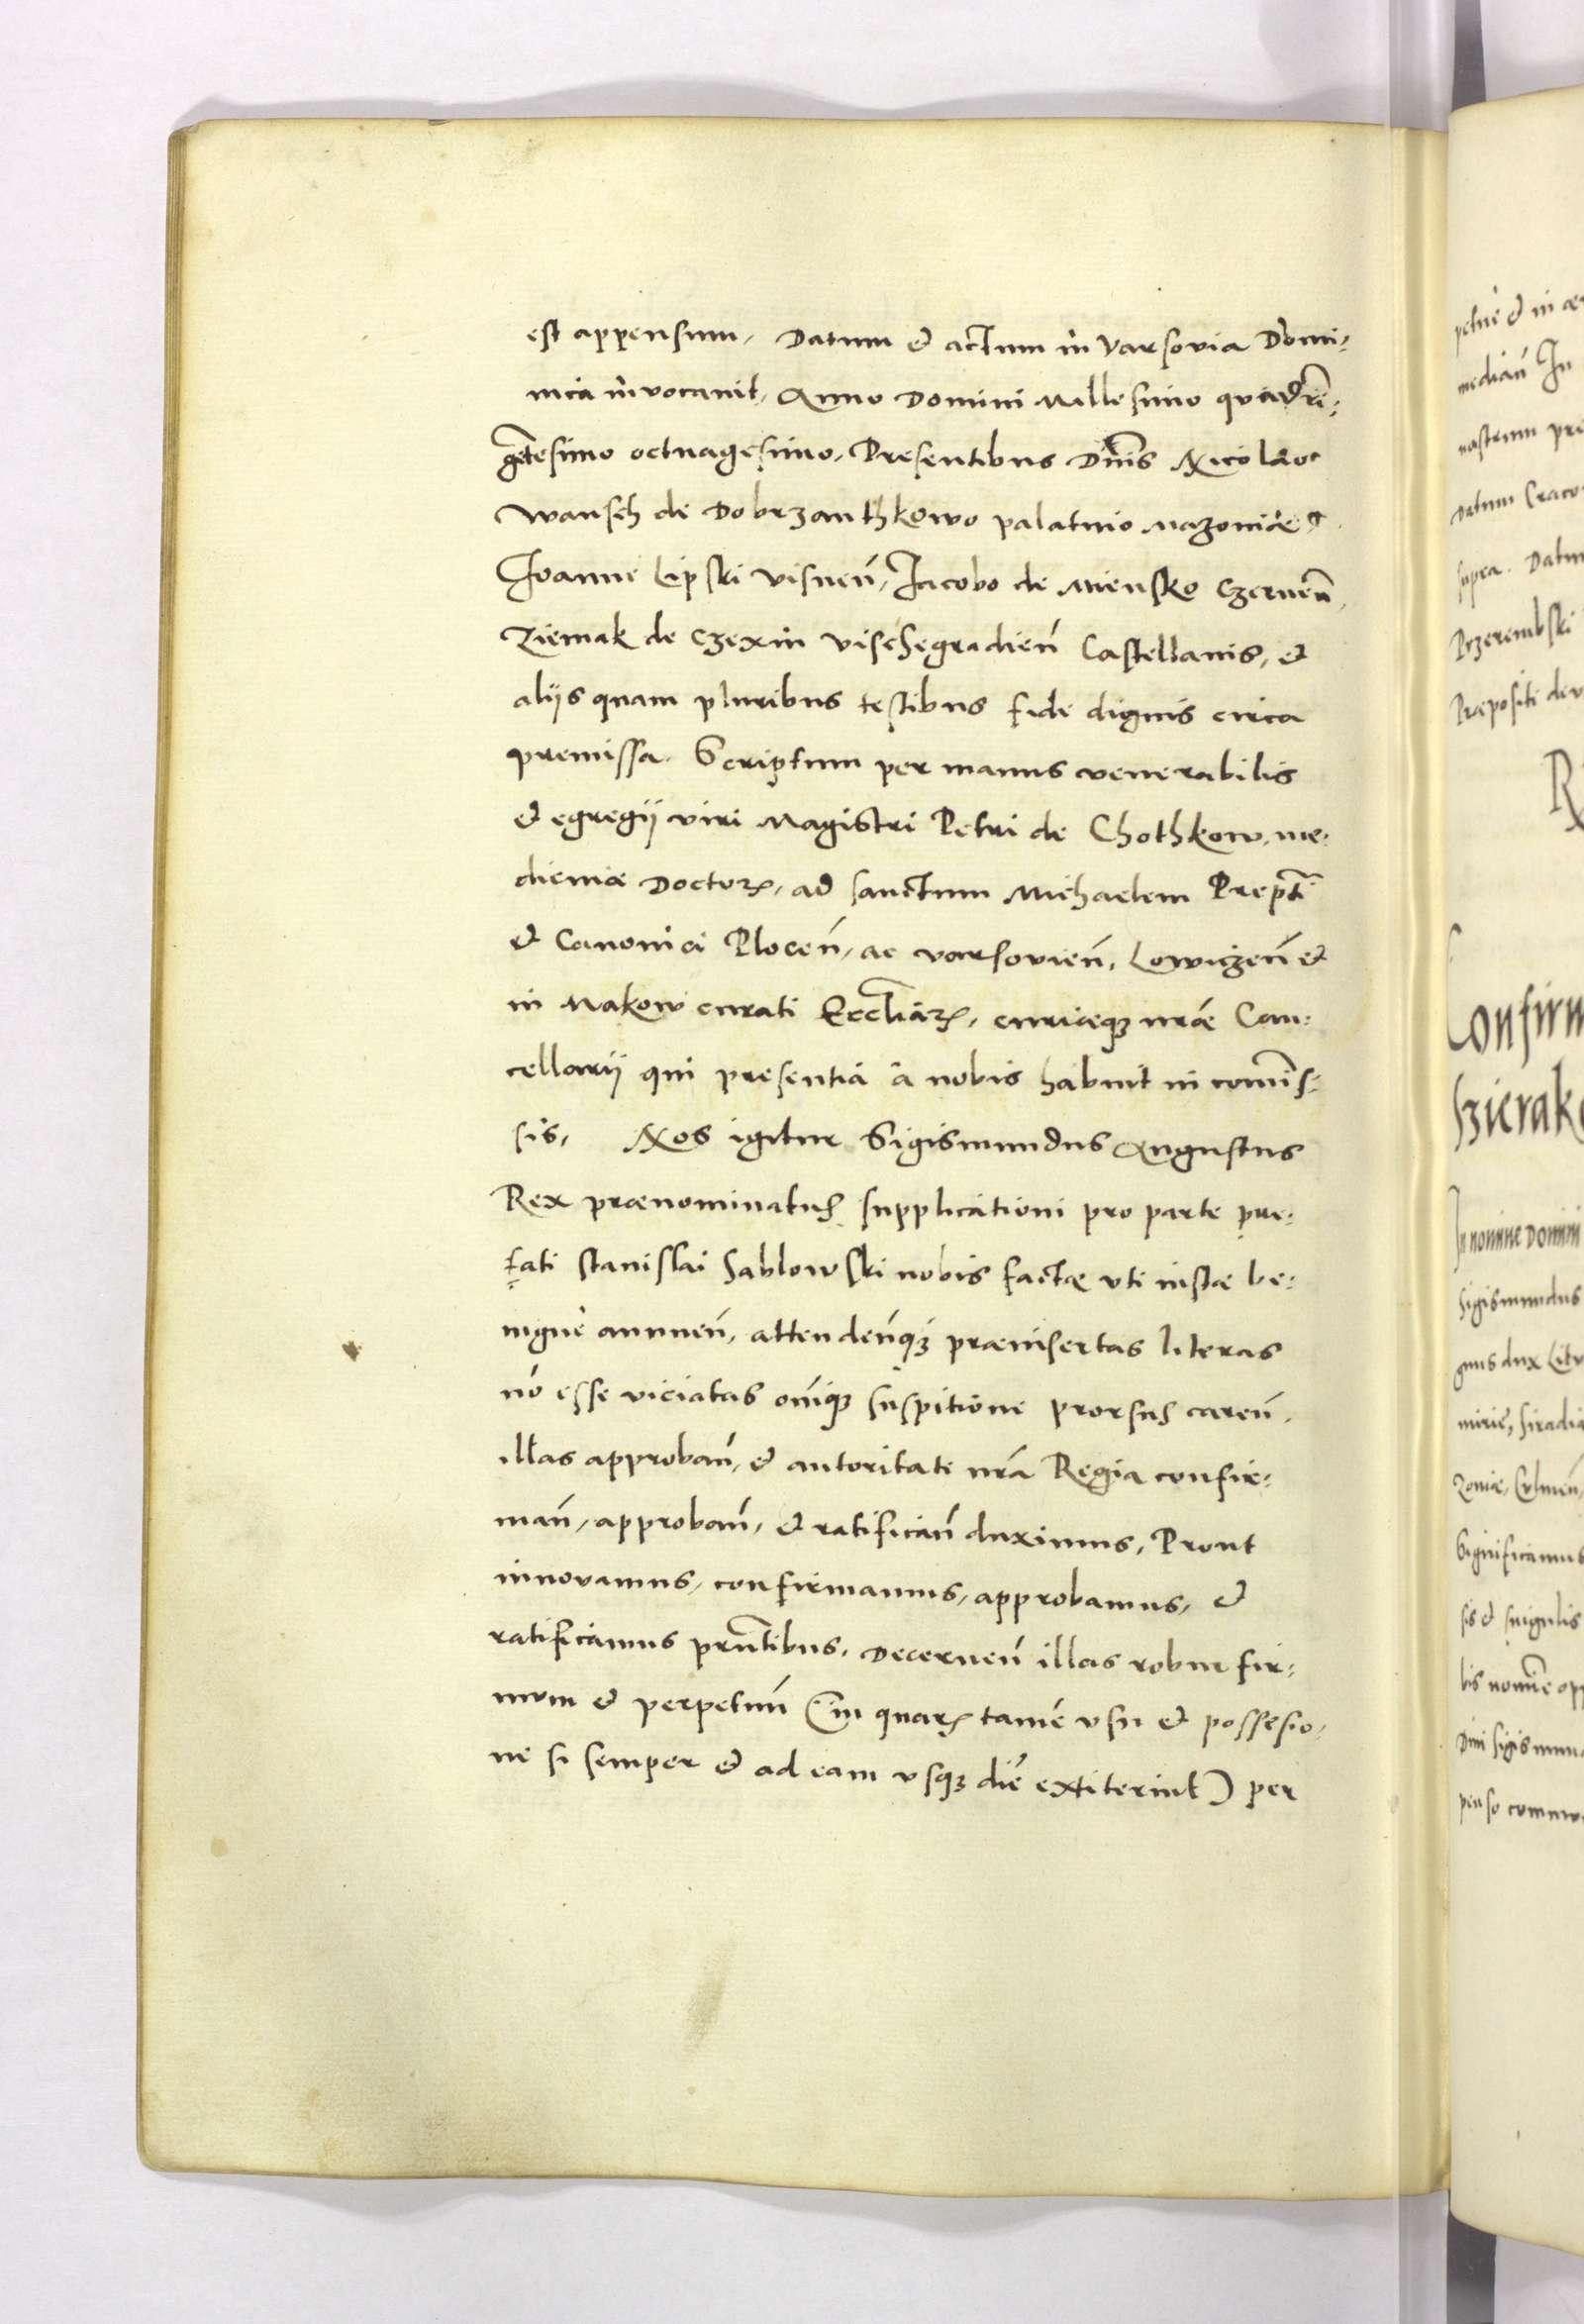 est appensum, Datum & actum in Varsovia Domi:
nica invocavit, Anno Domini Millesimo quadrin:
gētesimo octuagesimo, Presentibus Dnis Nicolao
Wansch de Dobrzanthkowo palatino Mazoviæ
Ioanne Lipski Visnen̄, Iacobo de Miensko Czernen̄,
Ziemak de Czexin Vischegradien̄ Castellanis, &
aliis quam pluribus testibus fide dignis circa
premissa. Scriptum per manus venerabilis
& egregii viri Magistri Petri de Chothkow, me:
dicinæ Doctoꝝ, ad sanctum Michaelem Prepti
& Canonici Plocen̄, ac Varsovien̄, Lowiczen̄ &
in Makow curati Eccliaꝝ, curiæqꝫ nræ Can:
cellarii qui presentia à nobis habuit in comis:
sis, Nos igitur Sigismundus Augustus
Rex prænominatus supplicationi pro parte præ:
fati Stanislai Sablowski nobis factæ uti iustæ be:
nigne annuen̄, attendenqꝫ præinsertas literas
nō esse viciatas omiqꝫ suspitione prorsus caren̄,
illas approban̄, & autoritate nrā Regia confir:
man̄, approban̄, & ratifican̄ duximus, Prout
innovamus, confirmamus, approbamus, &
ratificamus prntibus, Decernen̄ illas robur fir:
mum & perpetuū (in quaꝝ tamē usu & possesio:
ne si semper & ad eam usqꝫ diē extiterint) per
petuè & in
median̄ In
nostrum
Datum
supra. Datum
Przerembski
Præpositi
In nomine Domini
Sigismundus
gnus dux
Culmen̄,
Significamus
sis & singulis